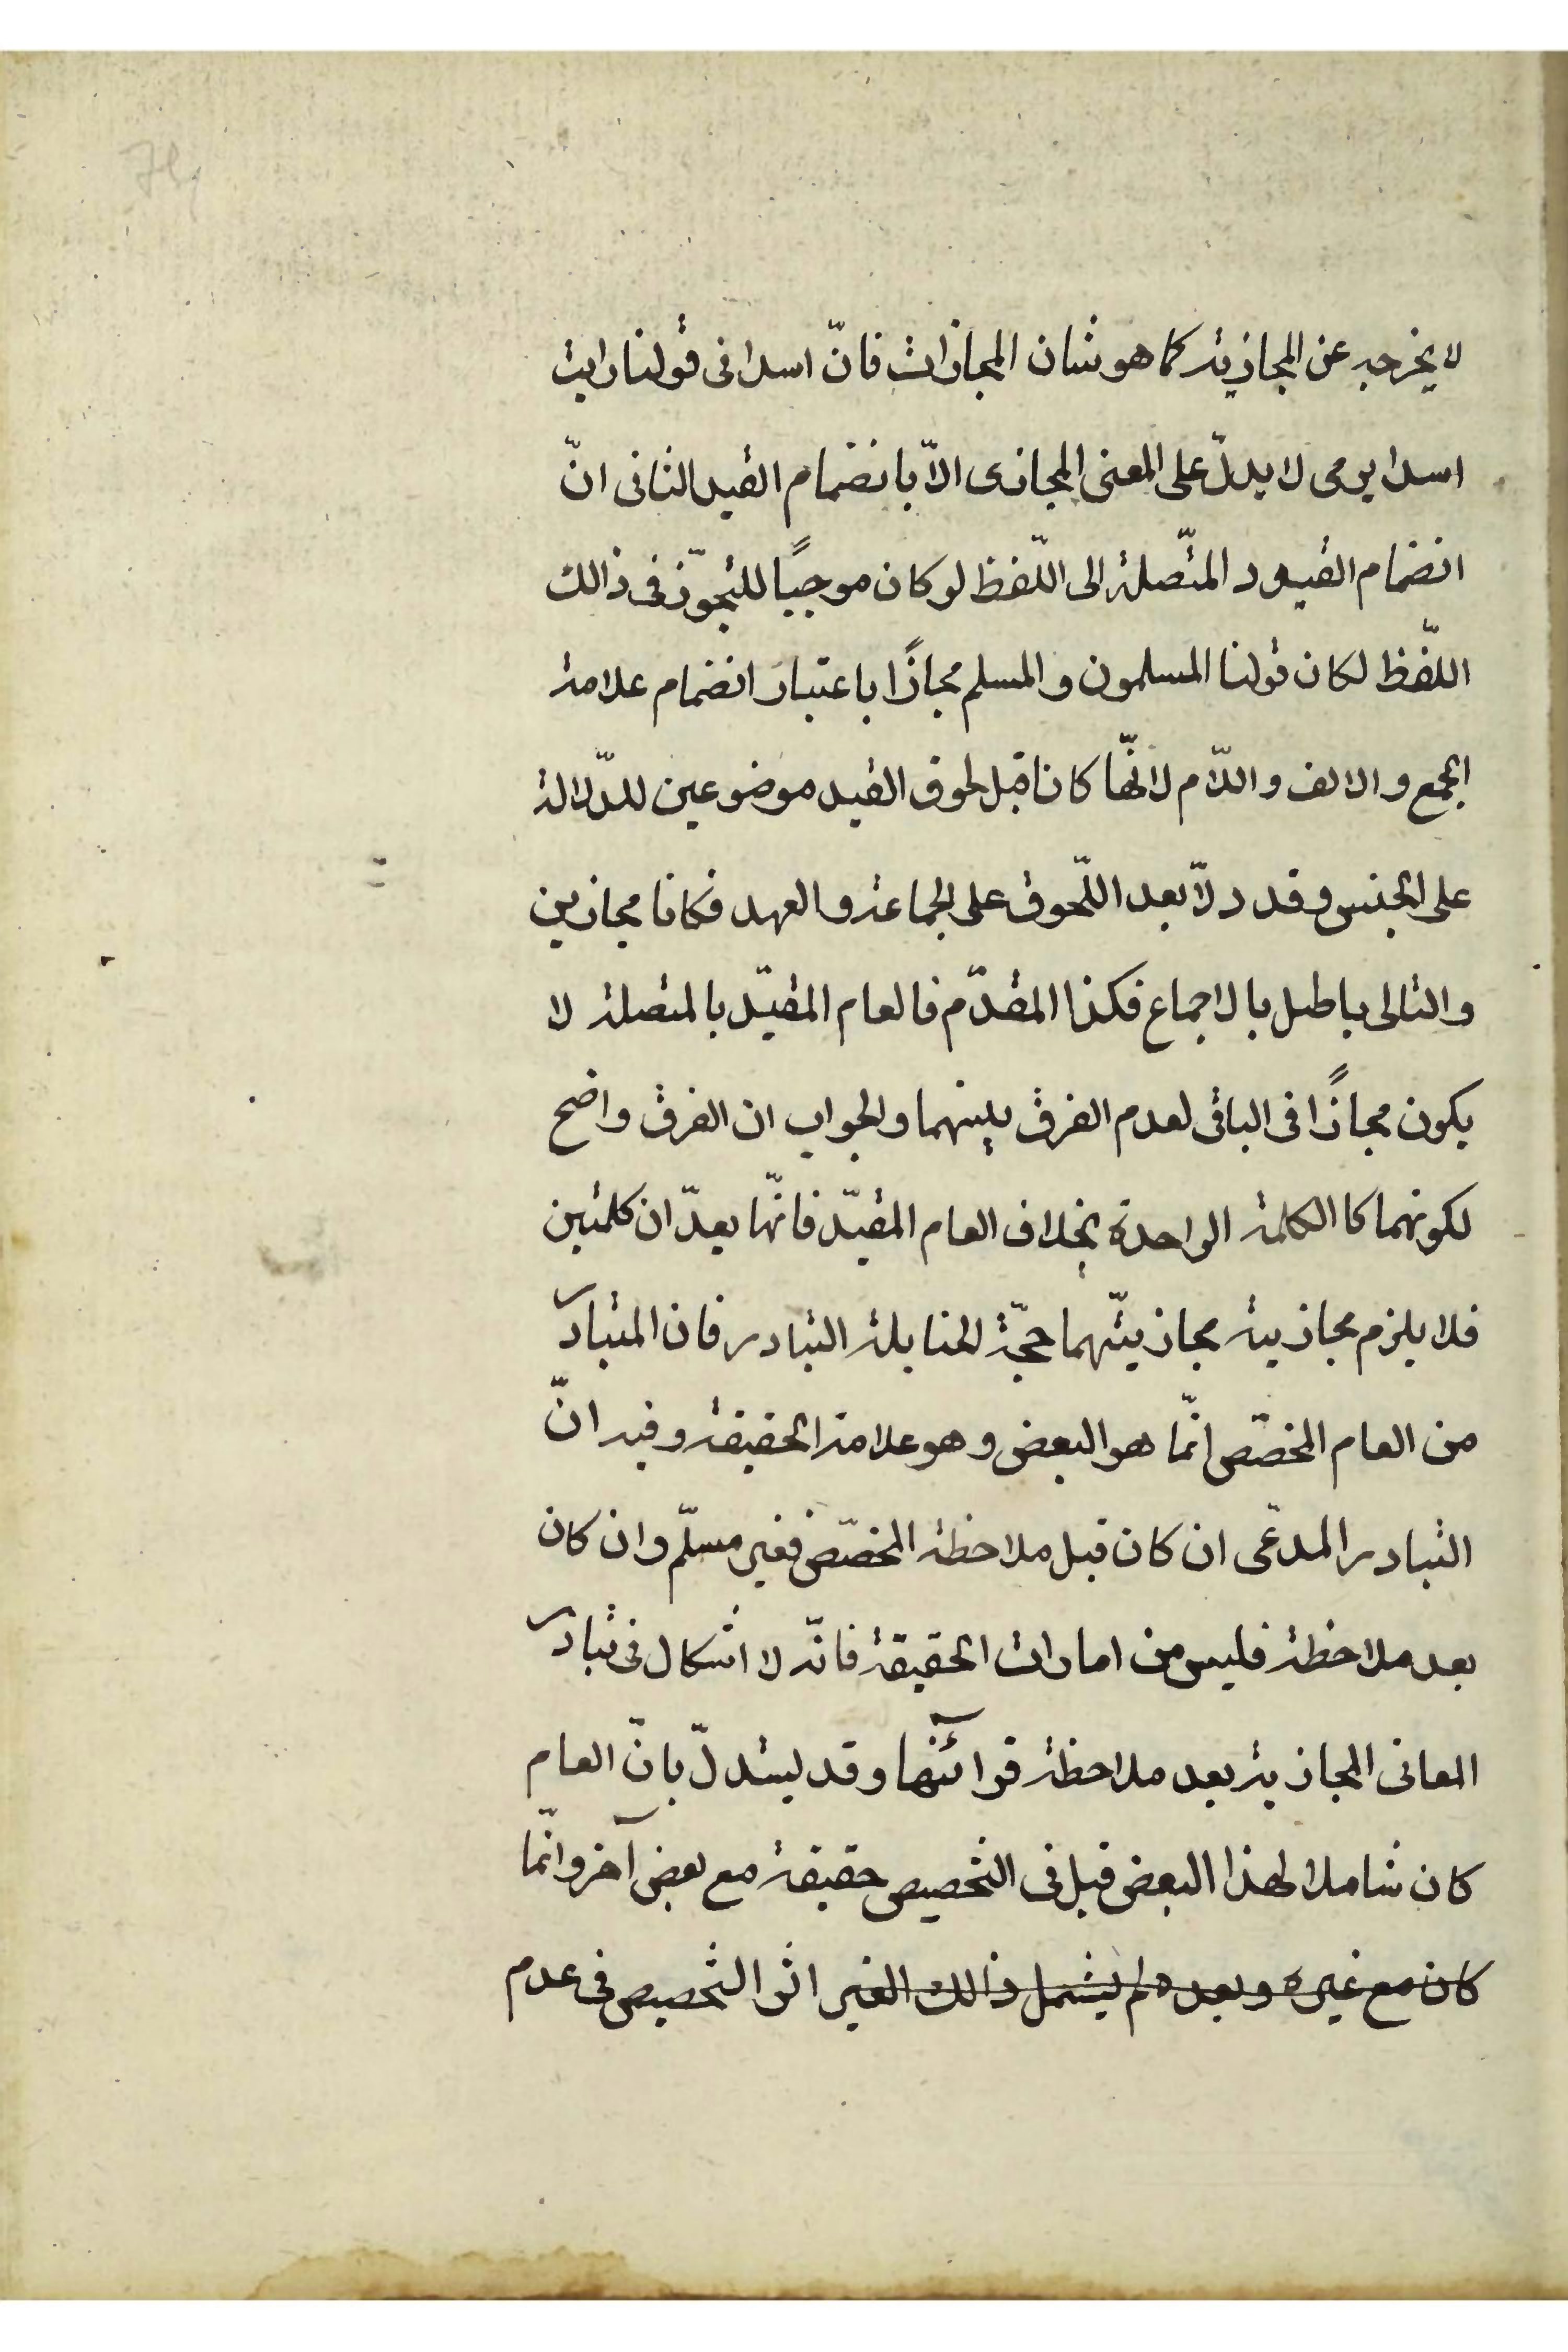 لا يخرجه عن المجازية كما هو شان المجازات فانّ اسدا فى قولنا رايت
اسدا يرمى لا يدلّ على المعنى المجازى الاّ بانضمام القيد الثانى انّ
انضمام القيود المتّصلة الى اللّفظ لو كان موجبًا للتجوّز فى ذالك
اللّفظ لكان قولنا المسلمون و المسلم مجازًا باعتبار انضمام علامة
الجمع و الالف و اللّام لانّها كانا قبل لحوق القيد موضوعين للدّلالة
على الجنس و قد دلاّ بعد اللّحوق على الجماعة و العهد فكانا مجازين
و التالى باطل بالاجماع فكذا المقدّم فالعام المقيّد بالمتصلة لا
يكون مجازًا فى الباقى لعدم الفرق بينهما و الجواب ان الفرق واضح
لكونهما كا الكلمة الواحدة بخلاف العام المقيّد فانّها يعدّان كلمتين
فلا يلزم مجازية مجازيتّهما حجّة الحنابلة التبادر فان المتبادر
من العام المخصّص انّما هو البعض و هو علامة الحقيقة و فيه انّ
التبادر المدّعى ان كان قبل ملاحظة المخصّص فغير مسلّم و ان كان
بعد ملاحظة فليس من امارات الحقيقة فانّه لا اشكال فى تبادر
المعانى المجازية بعد ملاحظة قرآئنها و قد يستدلّ بانّ العام
كان شاملا لهذا البعض قبل فى التخصيص حقيقة مع بعض آخر و انّما
كان مع غيره و بعده لم يشمل ذالك الغير اثر التخصيص فى عدم